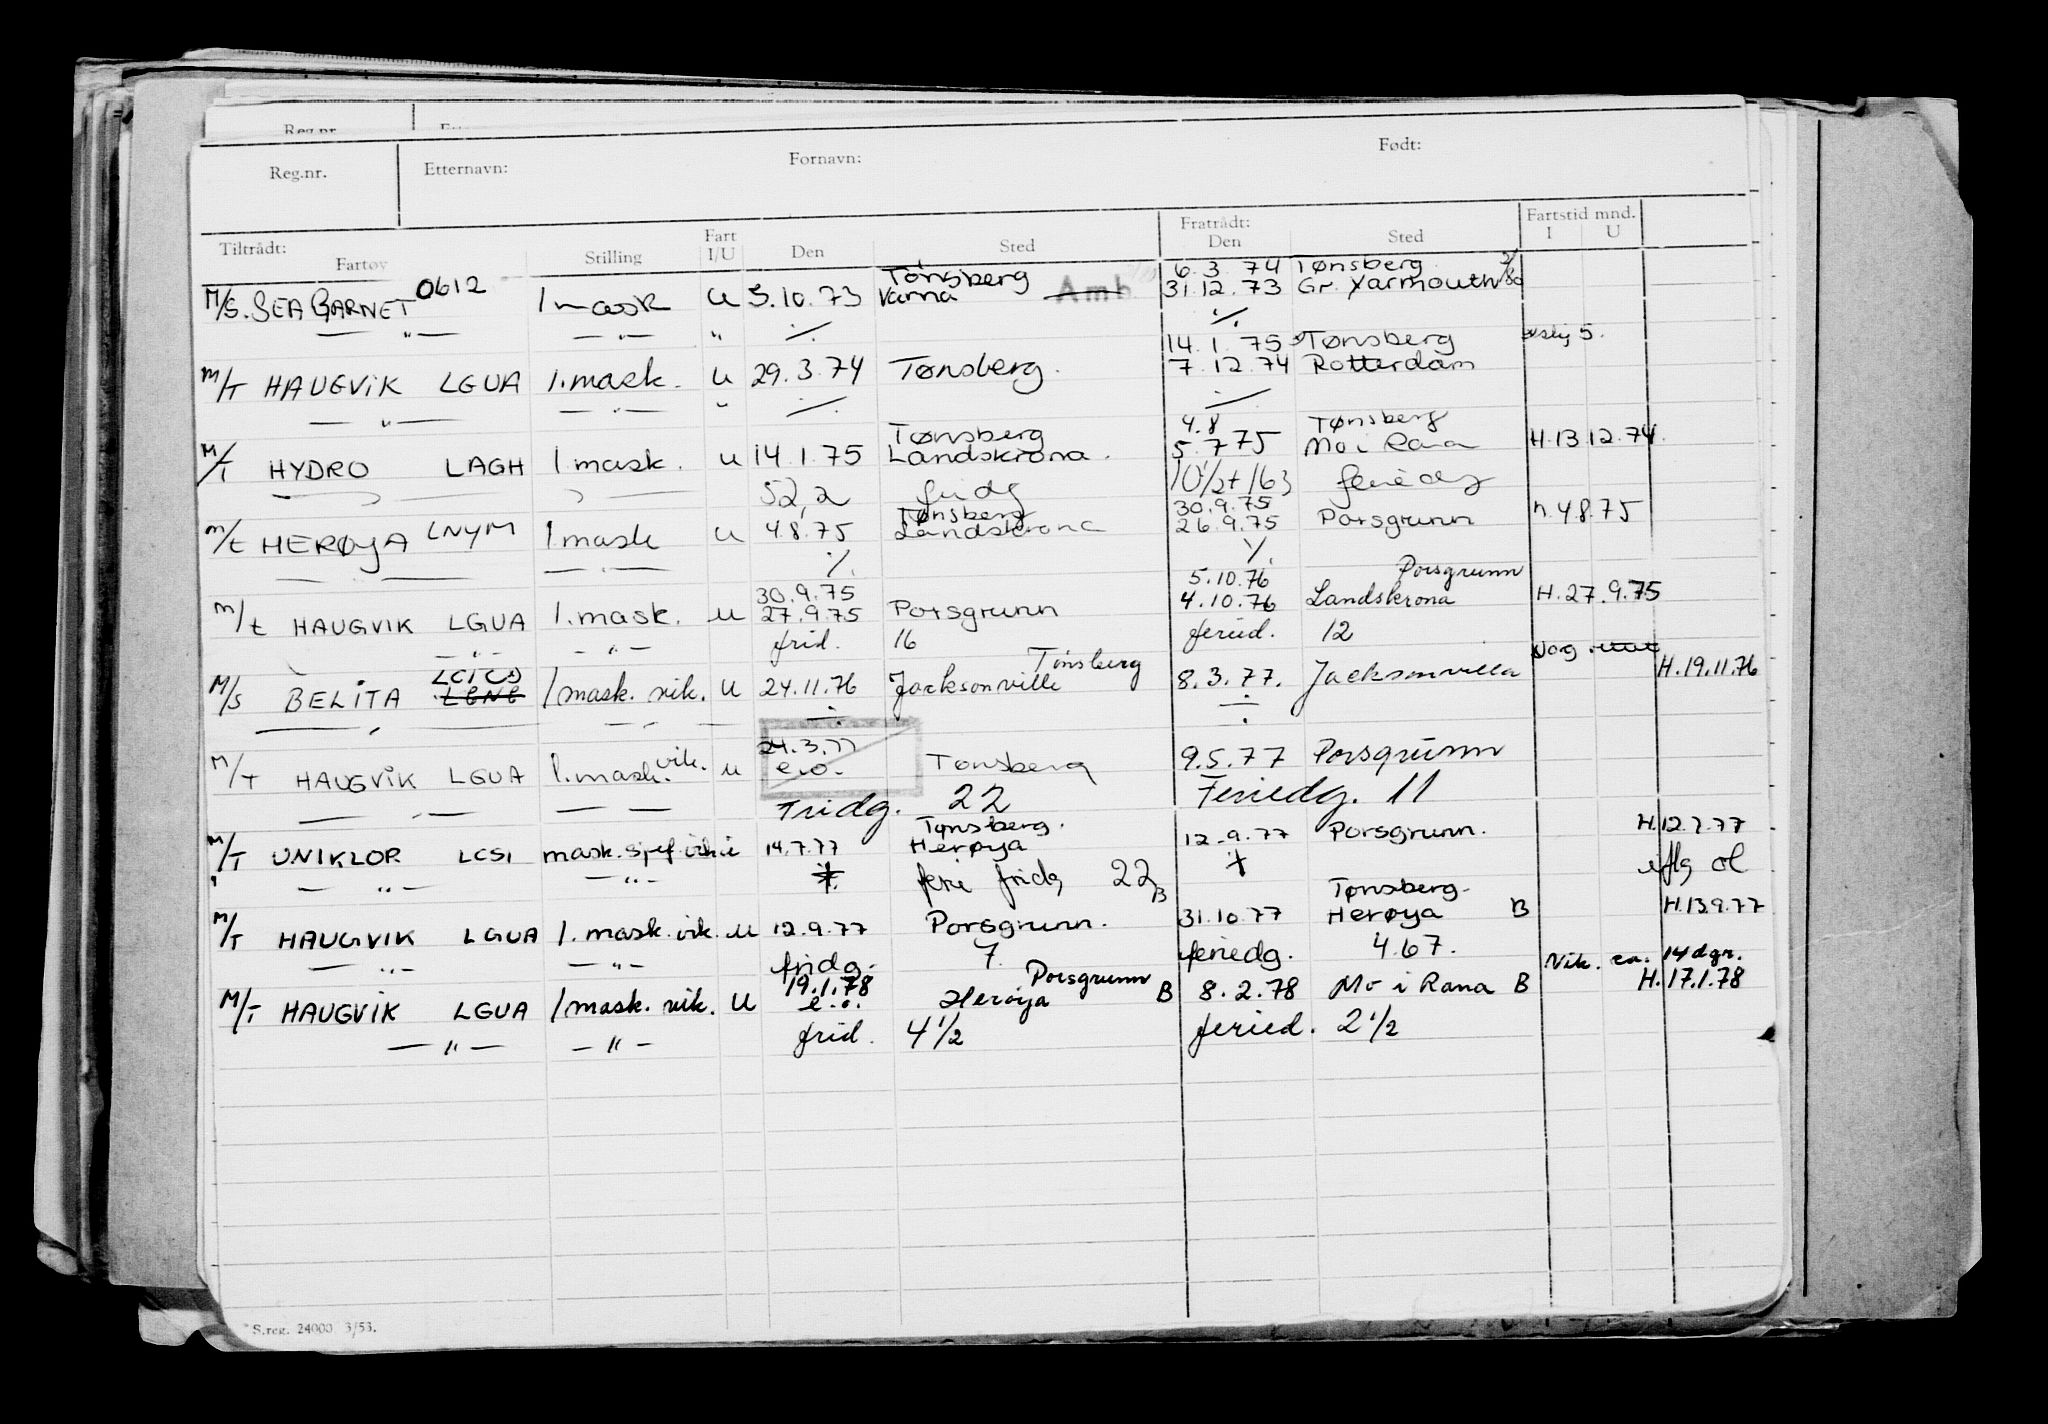 Reg.nr.
Reg.nr. Etternavn: Fornavn: Født:
Tiltrådt: Fratrådt: Fartstid mnd.
Fartøy Stilling Fart I/U Den Sted Den Sted I U
Tønsberg 6.3.74 Tønsberg
M/S. SEA GARNET 0612 1 mask U 5.10.73 Varna Amb 31.12.73 Gr. Yarmouth
— " — — " — " ./. ./.
14.1.75 Tønsberg 5.
M/T HAUGVIK LGUA 1.mask. U 29.3.74 Tønsberg. 7.12.74 Rotterdam
— " — — " — " ./. ./.
Tønsberg 4.8 Tønsberg
M/T HYDRO LAGH 1 mask. U 14.1.75 Landskrona. 5.7.75 Mo i Rana H.13.12.74.
52,2 fridg 10 1/2 + 163 feriedg
Tønsberg 30.9.75
M/t HERØYA LNYM 1 mask U 4.8.75 Landskrona 26.9.75 Porsgrunn h.4.8.75
— — — " — ./. ./.
30.9.75 5.10.76 Porsgrunn
M/t HAUGVIK LGUA 1.mask. U 27.9.75 Porsgrunn 4.10.76 Landskrona H.27.9.75
— " — — " — frid. 16 feried. 12
LCICD Tønsberg
M/S BELITA 1 mask. vik. U 24.11.76 Jacksonville 8.3.77. Jacksonville H.19.11.76
— " — — " — ./. ./.
24.3.77
M/T HAUGVIK LGUA 1.mask. vik. U e.o. Tønsberg 9.5.77 Porsgrunn
— " — — — Fridg. 22 Feriedg. 11
Tønsberg. H.12.7.77
M/T UNIKLOR LCSI mask. spes. vik U 14.7.77 Herøya 12.9.77 Porsgrunn.
— " — — " — ./. ferie fridg 22 B ./.
Tønsberg.
M/T HAUGVIK LGUA 1.mask. vik. U 12.9.77 Porsgrunn. 31.10.77 Herøya B H.13.9.77
— " — — " — fridg. 7 feriedg. 4.67.
19.1.78 Porsgrunn Vik. ca. 14 dgr.
M/T HAUGVIK LGUA 1 mask. vik. U e.o. Herøya B 8.2.78 Mo i Rana B H.17.1.78
— " — — " — frid. 4 1/2 feried. 2 1/2
S.reg. 24000 3/53.